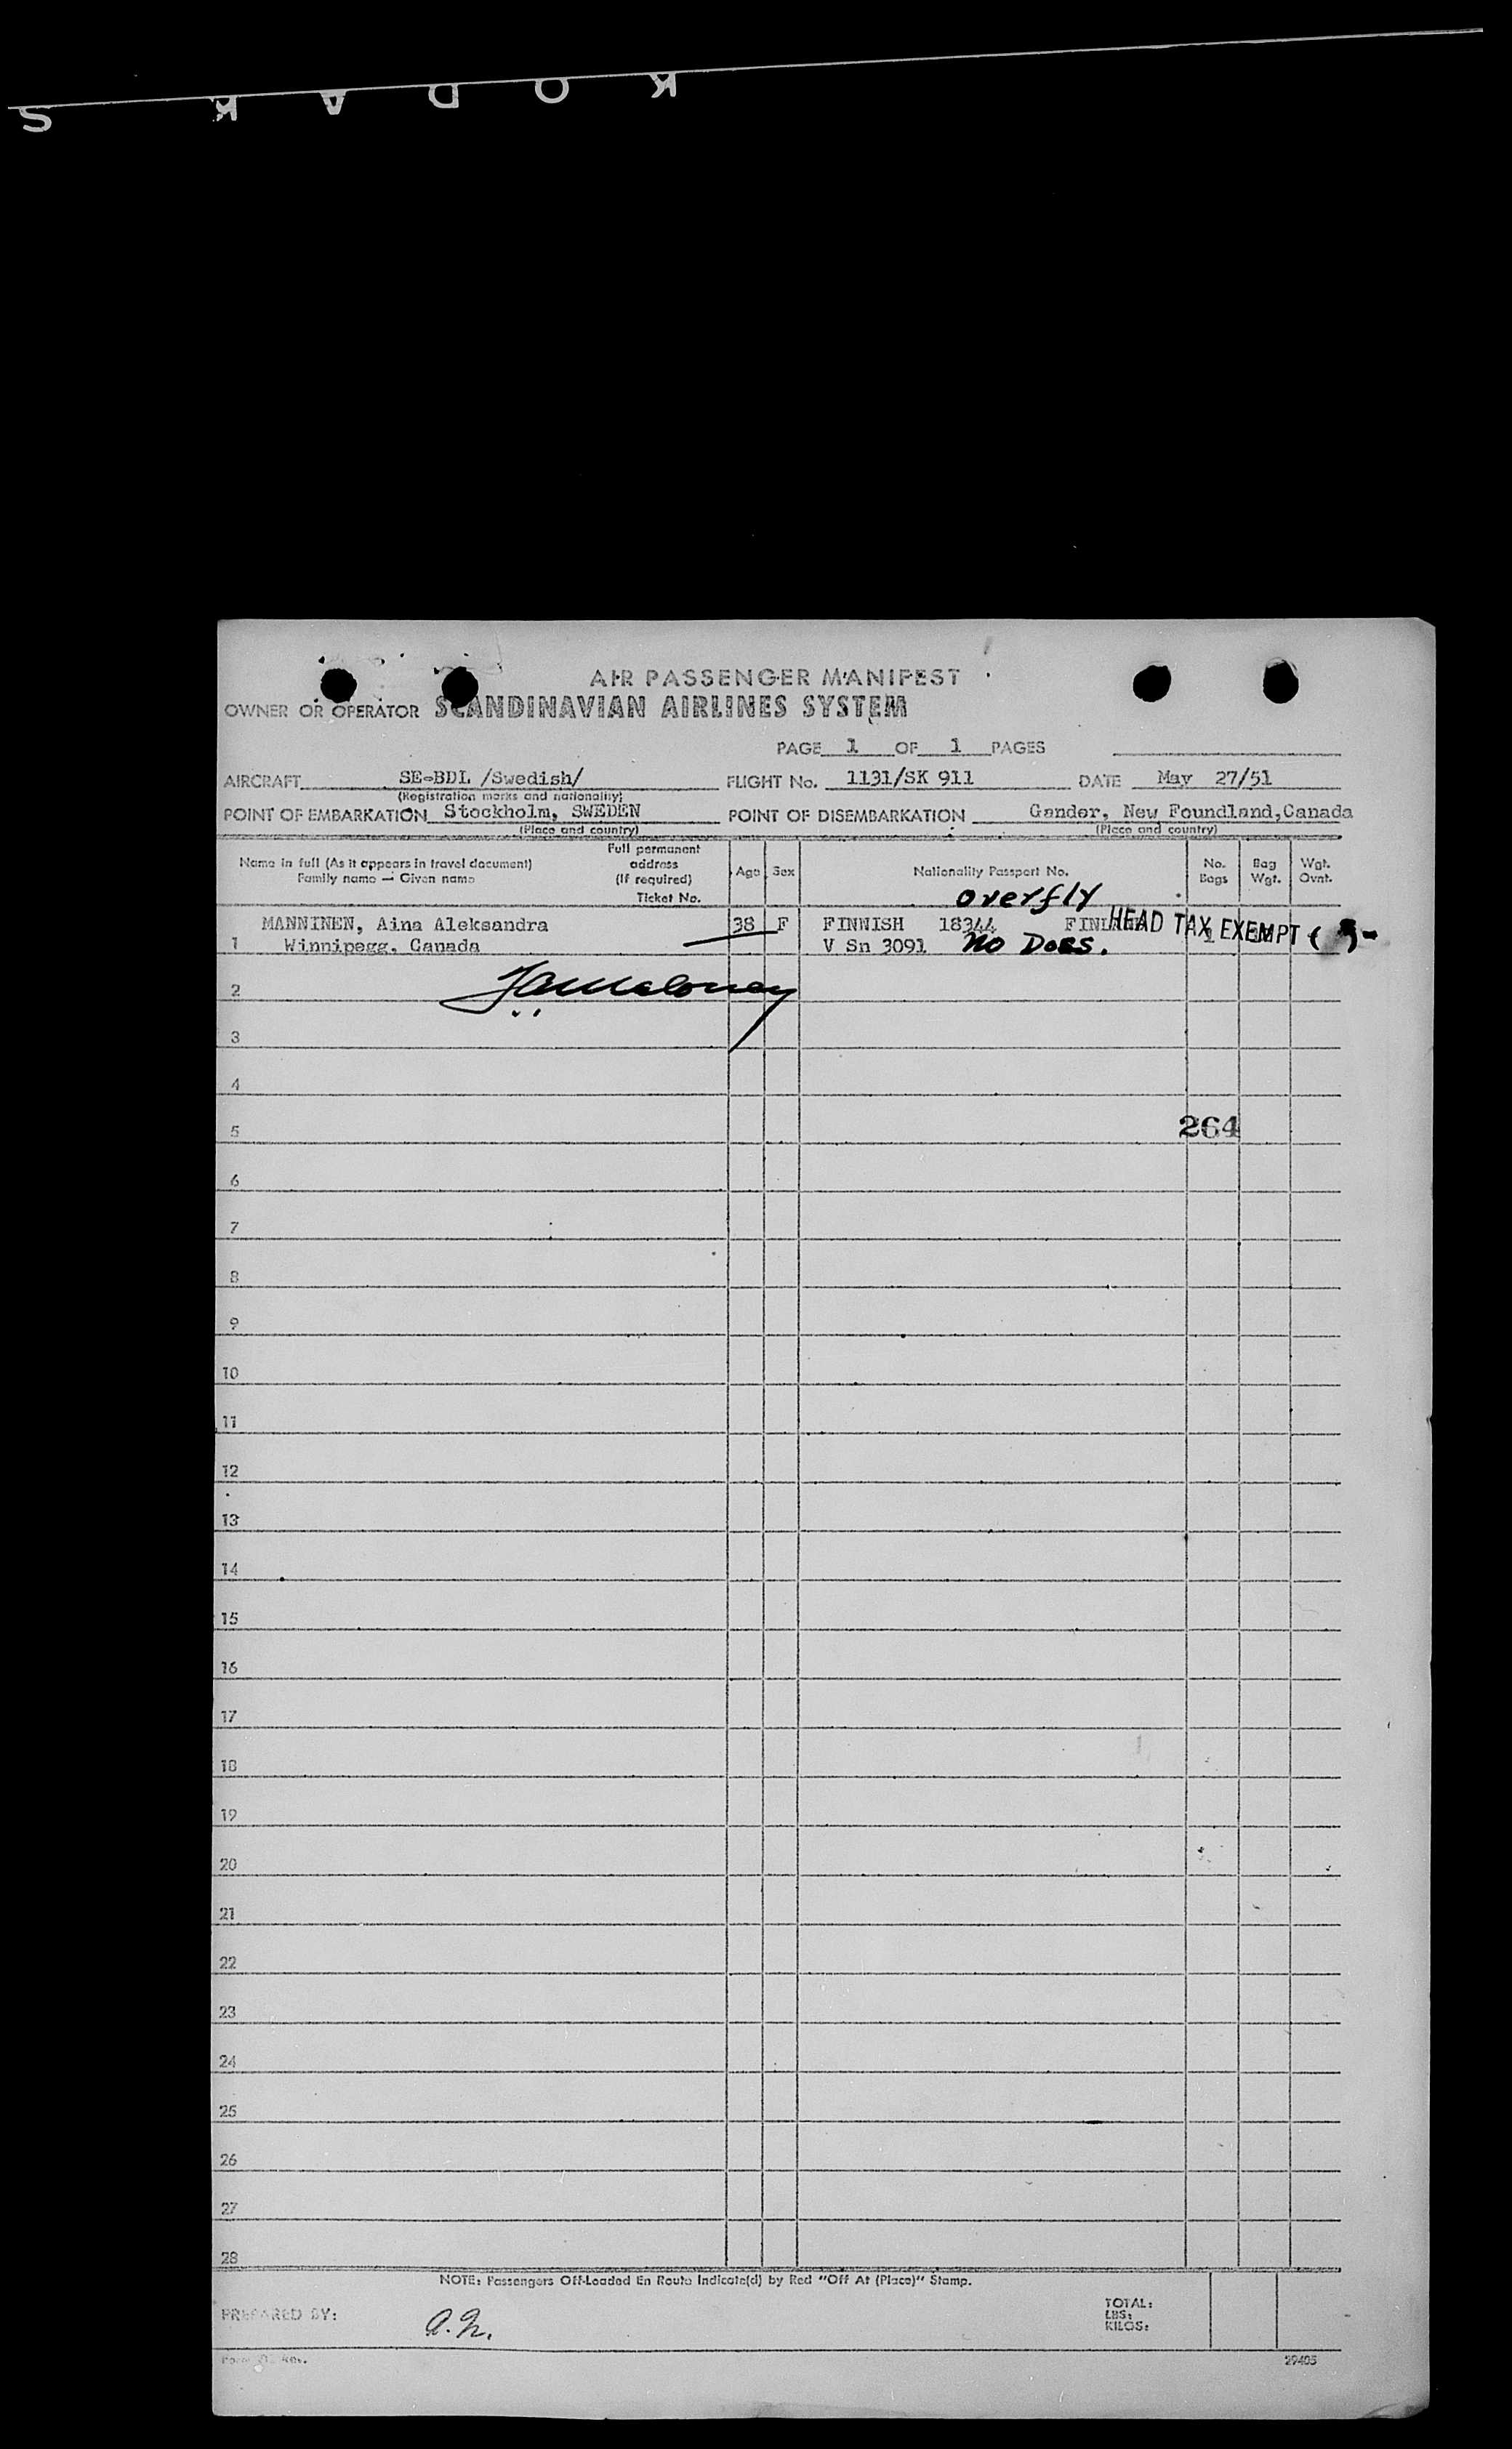 S KADOK
AIR PASSENGER MANIFEST
OWNER OR OPERATOR SCANDINAVIAN AIRLINES SYSTEM
PAGE 1 OF 1 PAGES
AIRCRAFT SE-BDL /Swedish/ FLIGHT No. 1131/SK 911 DATE May 27/51
(Registration marks and nationality)
POINT OF EMBARKATION Stockholm, SWEDEN POINT OF DISEMBARKATION Gander, New Foundland,Canada
(Place and country) (Place and country)
Name in full (As it appears in travel document) Family name — Given name
Full permanent address (If required) Ticket No.
Age Sex Nationality Passport No. No. Bags Bag Wgt. Wgt. Ovnt.
overfly
MANNINEN, Aina Aleksandra 38 F FINNISH 18344 HEAD TAX EXEMPT (
1 Winnipegg, Canada V Sn 3091 No Docs.
2
3
4
264
5
6
7
8
9
10
11
12
13
14
15
16
17
18
19
20
21
22
23
24
25
26
27
28
NOTE: Passengers Off-Loaded En Route Indicate(d) by Red "Off At (Place)" Stamp.
PREPARED BY: a.n.
TOTAL:
LBS:
KILOS:
29405